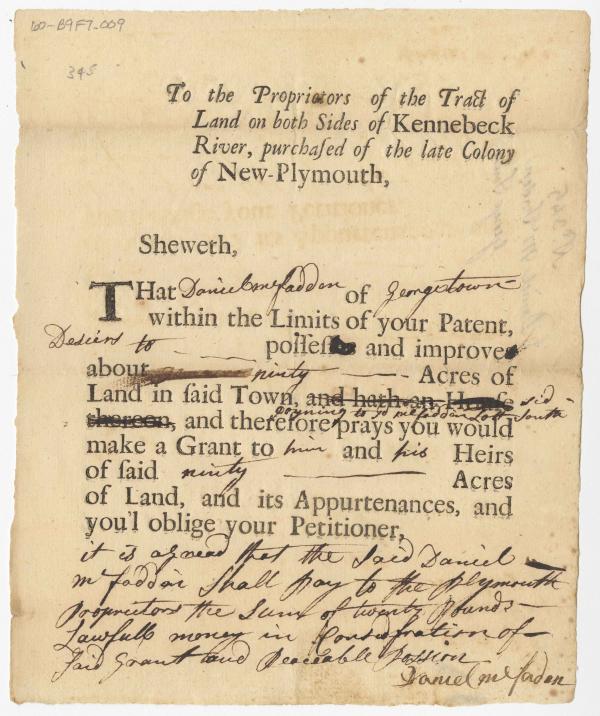 60-B9F7-009
345
To the Proprietors of the Tract of
Land on both Sides of Kennebeck
River, purchaſed of the late Colony
of New-Plymouth,
Sheweth,
THat Daniel mcfadden of Georgetown
within the Limits of your Patent,
Desiers to poſſeſs and improve
about ninty Acres of
Land in ſaid Town, and hath an Houſe sid
joyning to mcfadden Lott South
thereon, and therefore prays you would
make a Grant to him and his Heirs
of ſaid ninty Acres
of Land, and its Appurtenances, and
you'l oblige your Petitioner,
it is agread that the Said Daniel
mcfadden Shall Pay to the Plymouth
Proprietors the Sum of twenty Pounds
Lawfull money in Consideration of
Said Grant and Peaceable Possion
Daniel mcfaden